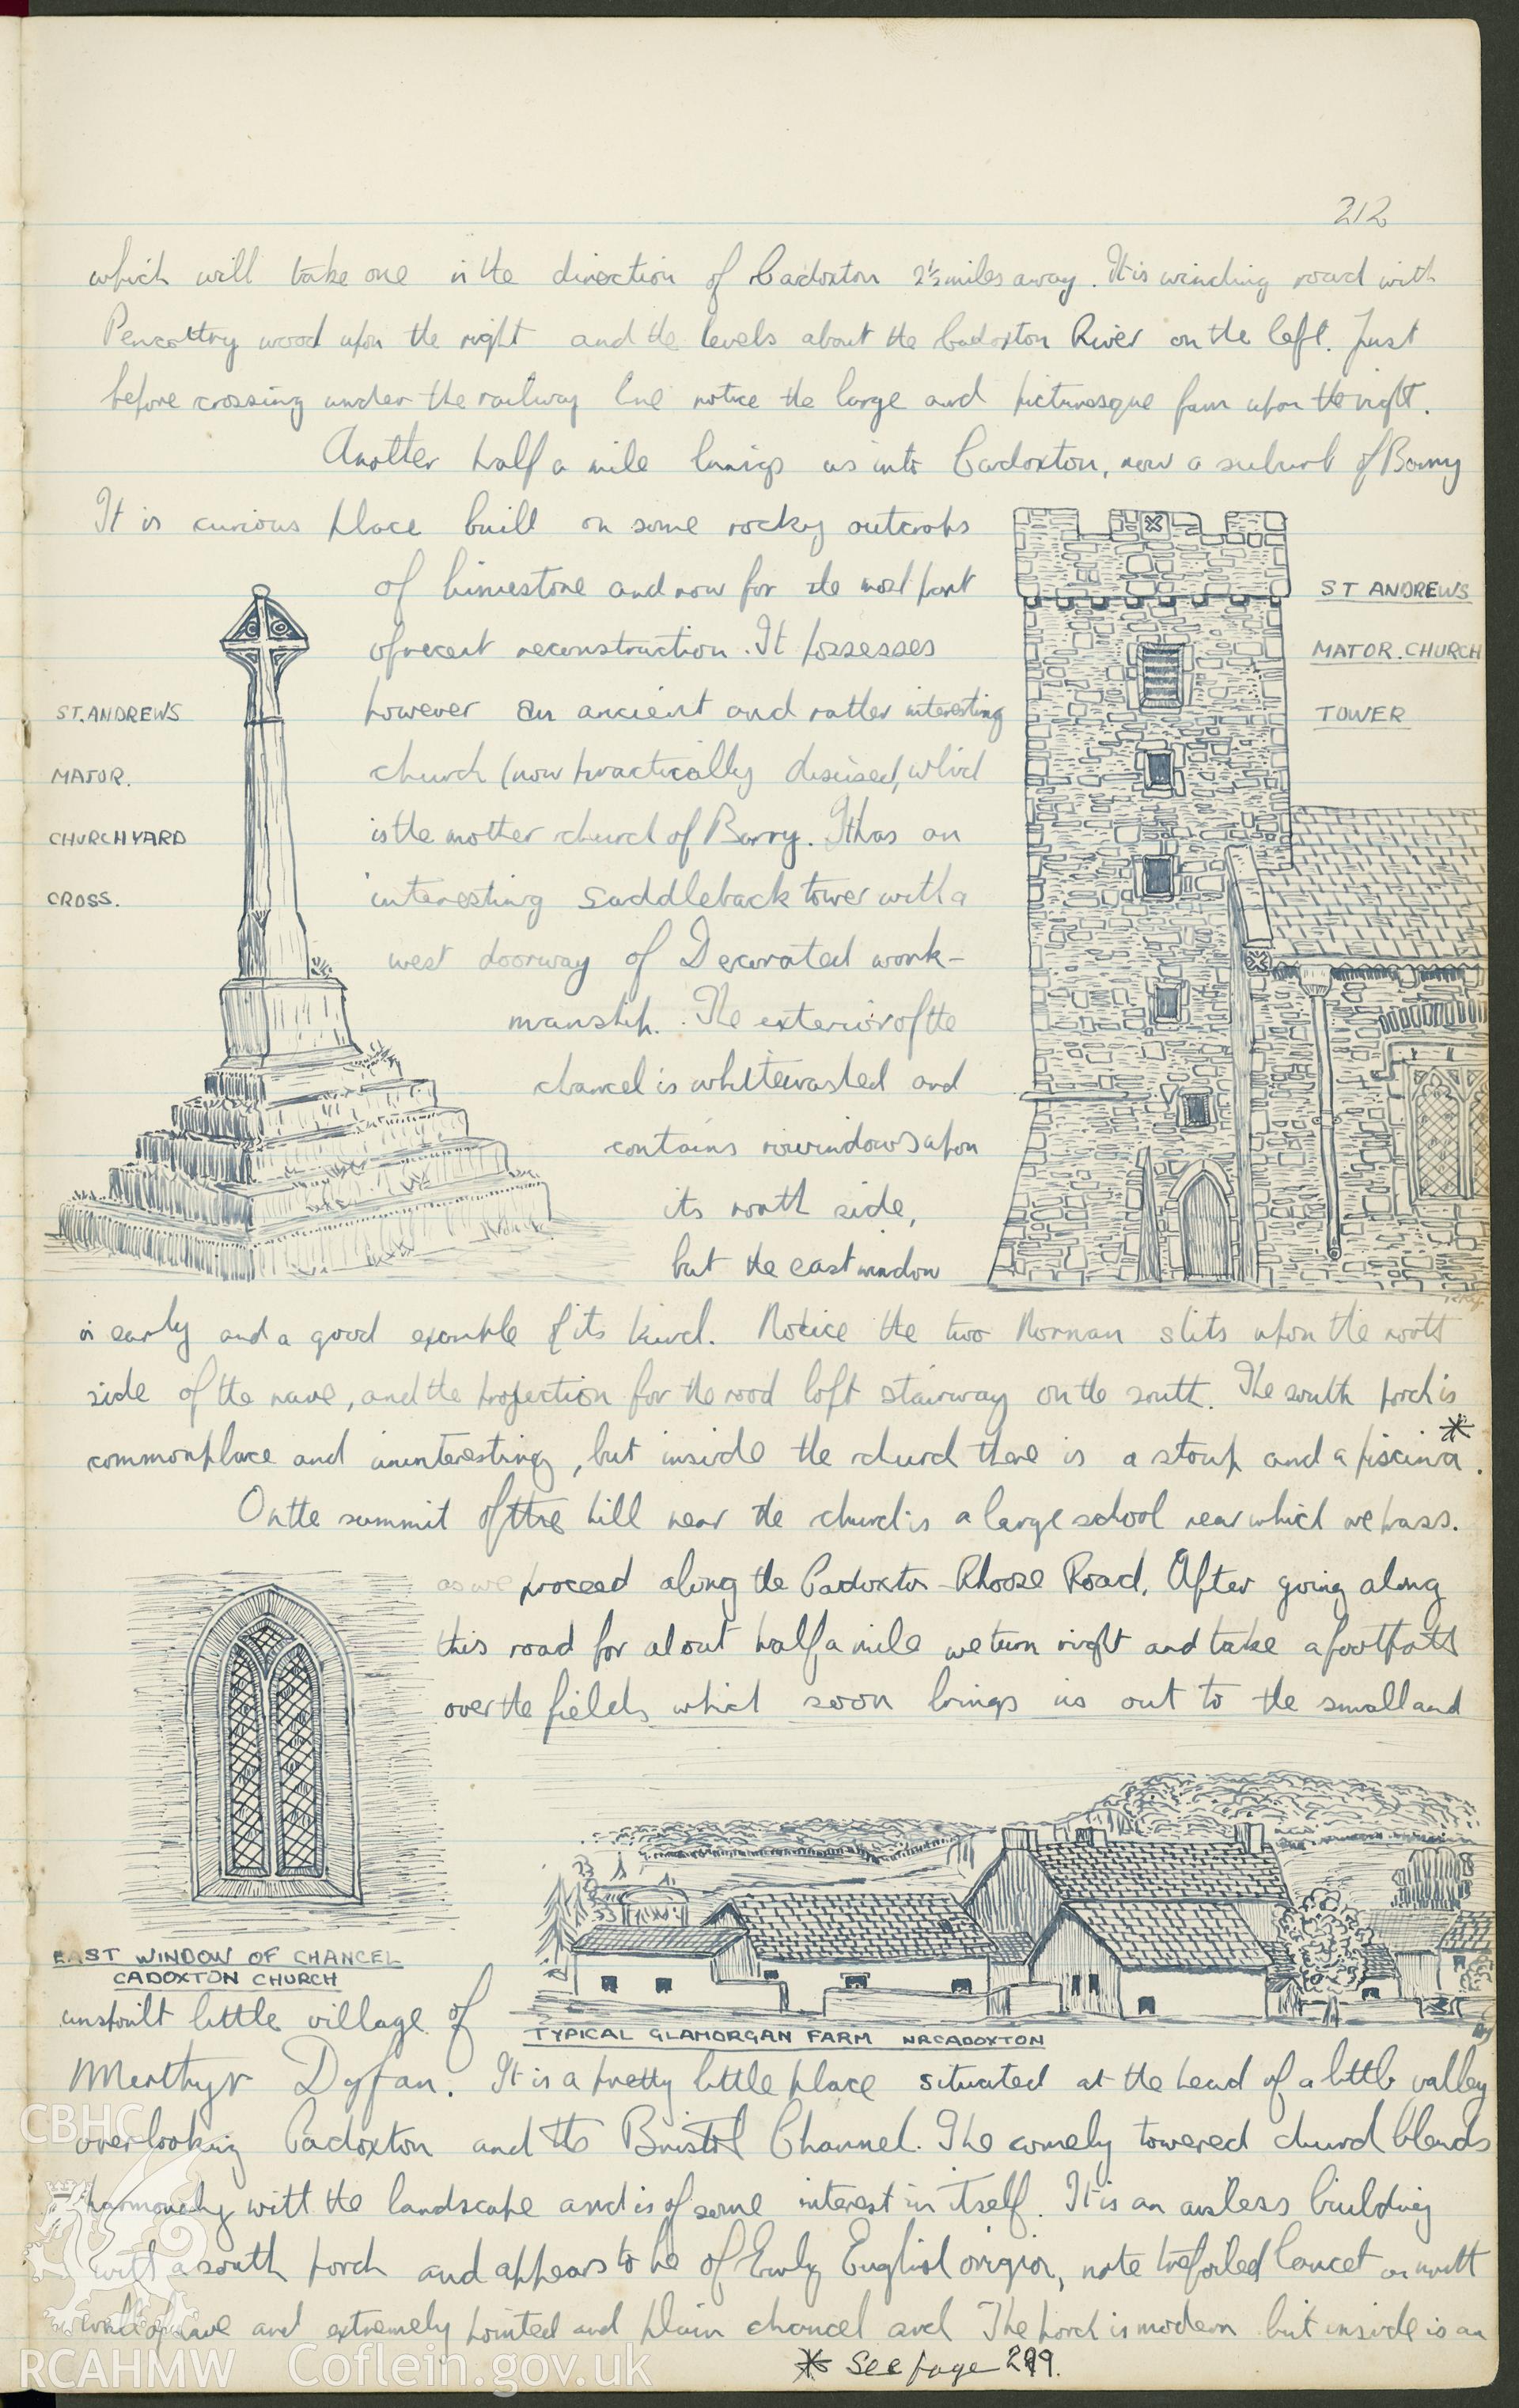 212
which will take one in the direction of Cadoxton 2½ miles away. It is winding road with
Pencottry wood upon the right and the levels about the Cadoxton River on the left. Just
before crossing under the railway line notice the large and picturesque farm upon the right.
Another half a mile brings us into Cadoxton, now a suburb of Barry
It is curious place built on some rocky outcrops
of limestone and now for the most part
of recent reconstruction. It possesses
however an ancient and rather interesting
church (now practically disused, which
is the mother church of Barry. It has an
interesting saddleback tower with a
west doorway of Decorated work-
manship. The exterior of the
chancel is whitewashed and
contains windows upon
its north side,
but the east window
ST ANDREWS
MAJOR. CHURCH
TOWER
ST. ANDREWS
MAJOR.
CHURCHYARD
CROSS.
is early and a good example of its kind. Notice the two Norman slits upon the north
side of the nave, and the projection for the rood loft stairway on the south. The south porch is
commonplace and uninteresting, but inside the church there is a stoup and a piscina*.
On the summit of the hill near the church is a large school near which we pass.
as we proceed along the Cadoxton-Rhoose Road. After going along
this road for about half a mile we turn right and take a footpath
over the fields which soon brings us out to the small and
EAST WINDOW OF CHANCEL
CADOXTON CHURCH
TYPICAL GLAMORGAN FARM NR CADOXTON
unspoilt little village of
Merthyr Dyfan. It is a pretty little place situated at the head of a little valley
overlooking Cadoxton and the Bristol Channel. The comely towered church blends
harmoniously with the landscape and is of some interest in itself. It is an aisless building
with a south porch and appears to be of Early English origin, note trefoiled lancet on north
wall of nave and extremely pointed and plain chancel arch. The porch is modern but inside is an
* See page 299.
CBHC
RCAHMW Coflein.gov.uk